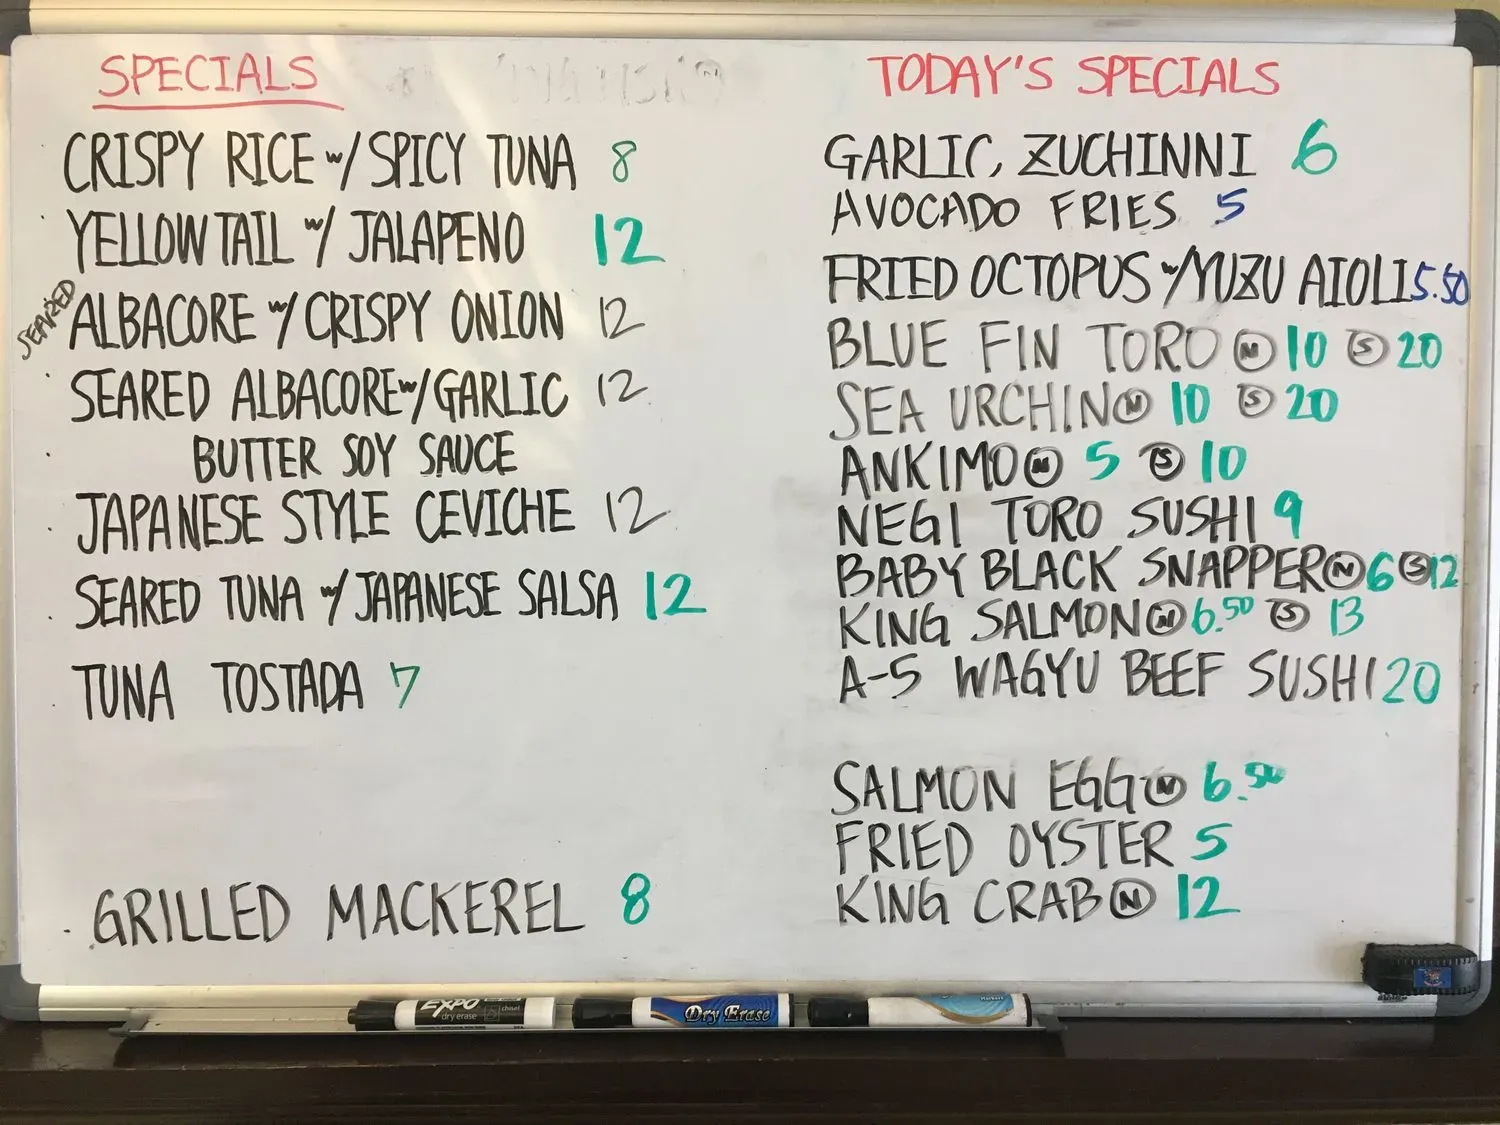 SPECIALS
CRISPY RICE w/ SPICY TUNA 8
YELLOWTAIL w/ JALAPENO 12
SEARED ALBACORE w/ CRISPY ONION 12
SEARED ALBACORE w/ GARLIC 12
BUTTER SOY SAUCE
JAPANESE STYLE CEVICHE 12
SEARED TUNA w/ JAPANESE SALSA 12
TUNA TOSTADA 7
GRILLED MACKEREL 8
TODAY'S SPECIALS
GARLIC, ZUCHINNI 6
AVOCADO FRIES 5
FRIED OCTOPUS w/ YUZU AIOLI 5.50
BLUE FIN TORO Ⓝ 10 Ⓢ 20
SEA URCHIN Ⓝ 10 Ⓢ 20
ANKIMO Ⓝ 5 Ⓢ 10
NEGI TORO SUSHI 9
BABY BLACK SNAPPER Ⓝ 6 Ⓢ 12
KING SALMON Ⓝ 6.50 Ⓢ 13
A-5 WAGYU BEEF SUSHI 20
SALMON EGG Ⓝ 6.50
FRIED OYSTER 5
KING CRAB Ⓝ 12
EXPO
dry erase
chisel
Dry Erase
Markers